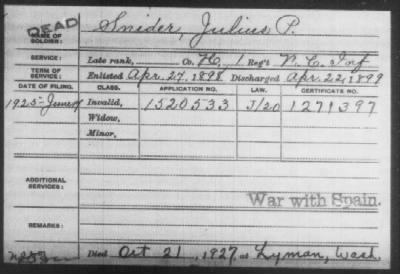 DEAD
NAME OF SOLDIER: Snider, Julius P.
SERVICE: Late rank, Co. H, 1 Reg't N. C. Inf
TERM OF SERVICE: Enlisted Apr. 27, 1898 Discharged Apr. 22, 1899
DATE OF FILING. CLASS. APPLICATION NO. LAW. CERTIFICATE NO.
1925-June Invalid, 1520533 J/20 1271397
Widow,
Minor,
ADDITIONAL SERVICES:
War with Spain.
REMARKS:
Died Oct 21, 1927, at Lyman, Wash